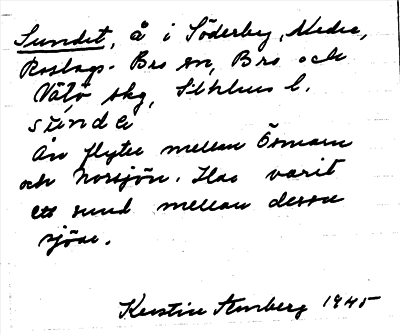 Sundet, å i Söderbg, Medea,
Roslags-Bro sn, Bro och
Vätö skg, Sthlms l.
súndè
Ån flyter mellan Ösmaren
och Norrsjön. Har varit
ett sund mellan dessa
sjöar.
Kerstin 1945